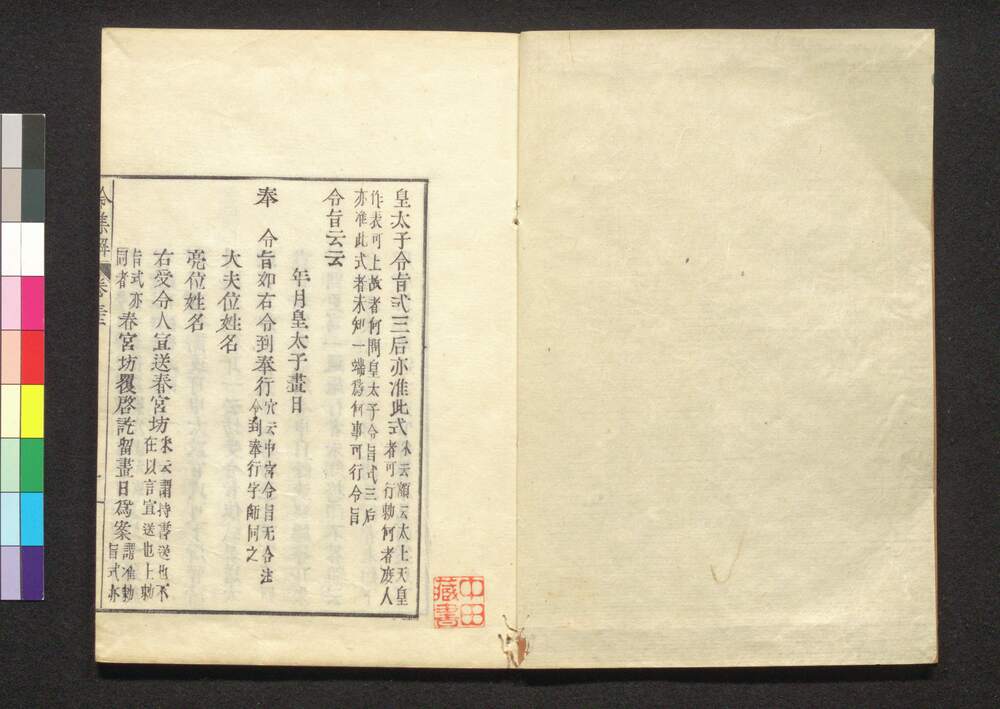 皇太子令旨式三后亦准此式朱云願云太上天皇
者可行勅何者凌人
作表可上故者何問皇太子令旨式三后
亦准此式者未知一端為何事可行令旨
令旨云云
年月皇太子畫日
奉 令旨如右令到奉行穴云中宮令旨无合注
令到奉行字師同之
大夫位姓名
亮位姓名
右受令人宣送春宮坊朱云謂持書送也不
在以言宣送也上勅
旨式亦
同者春宮坊覆啓訖留畫日為案謂准勅
旨式亦
令集解 卷三
中田
藏書